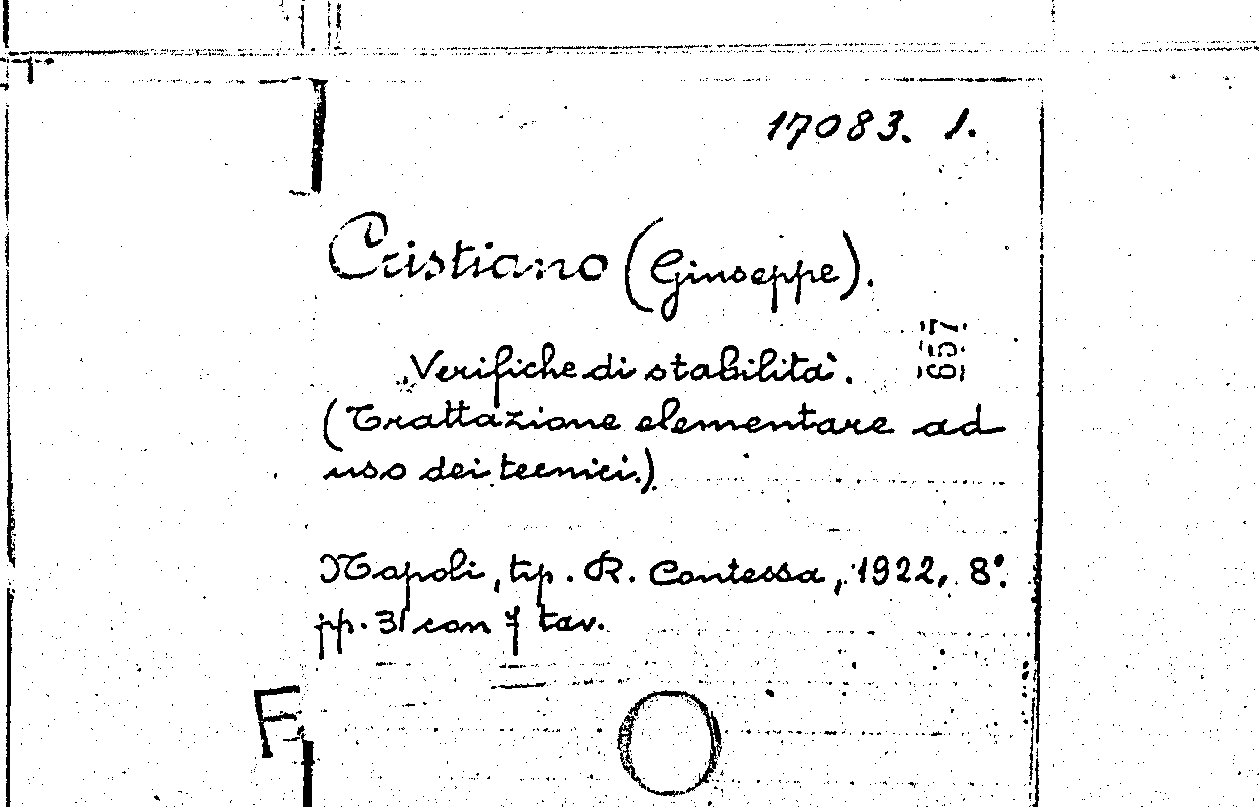 17083. 1.
Cristiano (Giuseppe).
657
Verifiche di stabilità.
(Trattazione elementare ad
uso dei tecnici.)
Napoli, tip. R. Contessa, 1922, 8°.
pp. 31 con 7 tav.